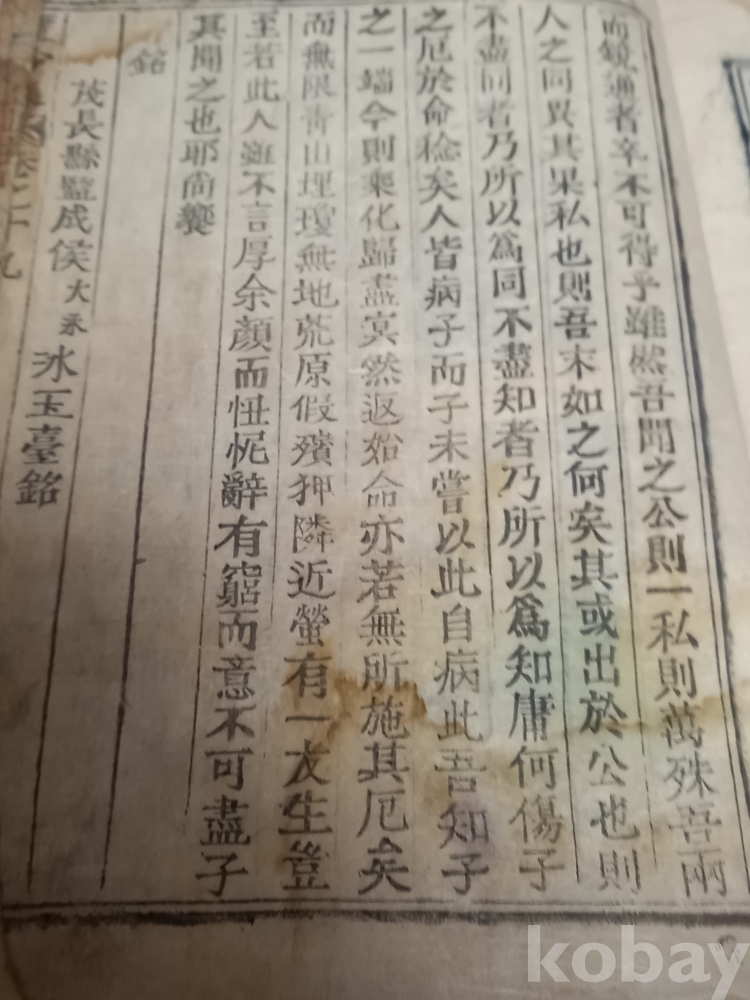 而鏡適者卒不可得乎雖然吾聞之公則一私則萬殊吾兩
人之同異其果私也則吾末如之何矣其或出於公也則
不盡同者乃所以爲同不盡知者乃所以爲知庸何傷子
之厄於命稔矣人皆病子而子未嘗以此自病此吾知子
之一端今則乘化歸盡冥然返始命亦若無所施其厄矣
而無限靑山埋瓊無地荒原假殯狎隣近螢有一友生豈
至若此人雖不言厚余顏而忸怩辭有窮而意不可盡子
其聞之也耶尙饗
銘
茂長縣監成侯大永氷玉臺銘
卷之十九
kobay